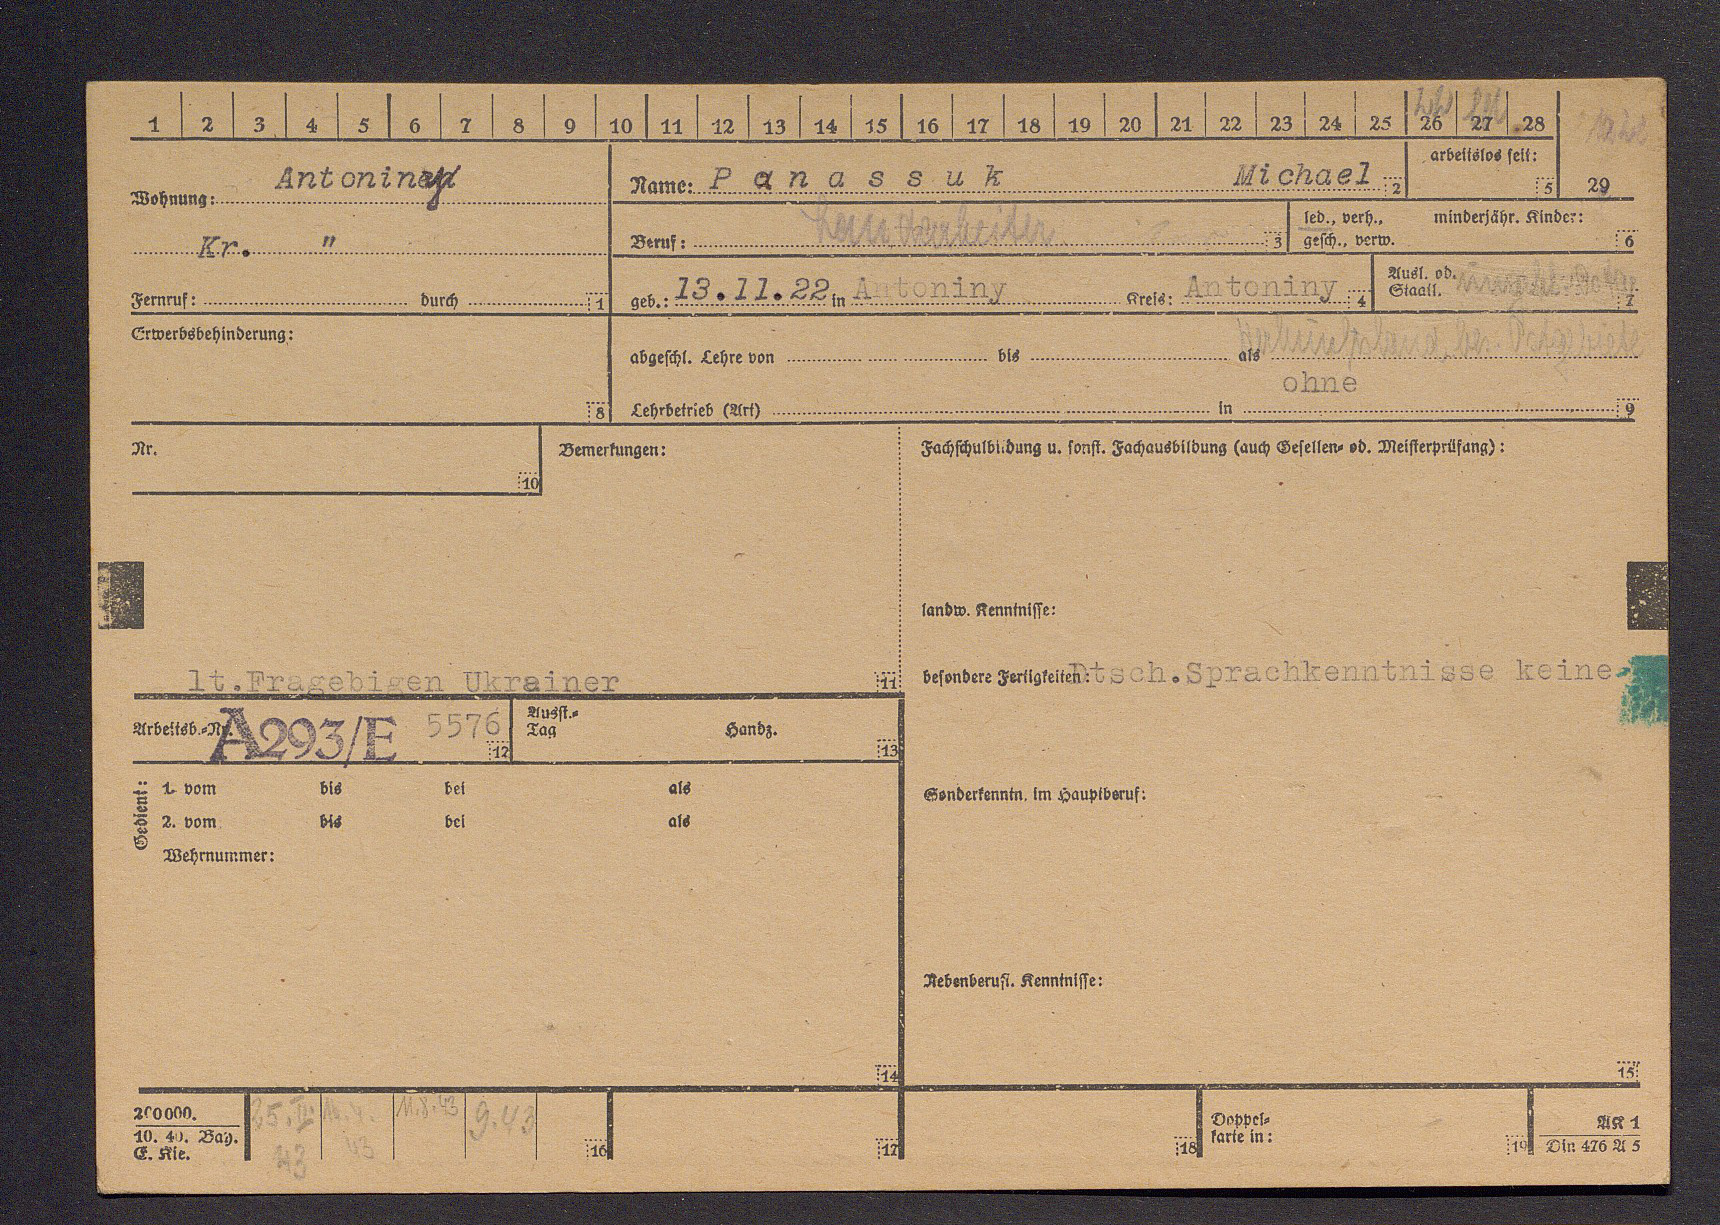 1 2 3 4 5 6 7 8 9 10 11 12 13 14 15 16 17 18 19 20 21 22 23 24 25 26 27 28
Wohnung: Antoniny
Kr. "
Fernruf: durch 1
Name: Panassuk Michael 2
arbeitslos seit: 5
29
Beruf: Landarbeiter 3
led., verh., gesch., verw.
minderjähr. Kinder: 6
geb.: 13.11.22 in Antoniny Kreis: Antoniny 4
Ausl. od. Staatl. 7
Erwerbsbehinderung: 8
abgeschl. Lehre von bis als
ohne
Lehrbetrieb (Art) in 9
Nr. 10
Bemerkungen:
lt.Fragebigen Ukrainer 11
Fachschulbildung u. sonst. Fachausbildung (auch Gesellen- od. Meisterprüfang):
landw. Kenntnisse:
besondere Fertigkeiten: Dtsch.Sprachkenntnisse keine
Arbeitsb.-Nr. A293/E 5576 12
Ausst.-Tag Handz. 13
Gedient:
1. vom bis bei als
2. vom bis bei als
Wehrnummer:
14
Sonderkenntn. im Hauptberuf:
Nebenberufl. Kenntnisse:
15
200000.
10. 40. Bay.
E. Kie.
25.II. 43
11.8.43
9.43
16
17
18
Doppel-
karte in: 19
AK 1
Din 476 A 5